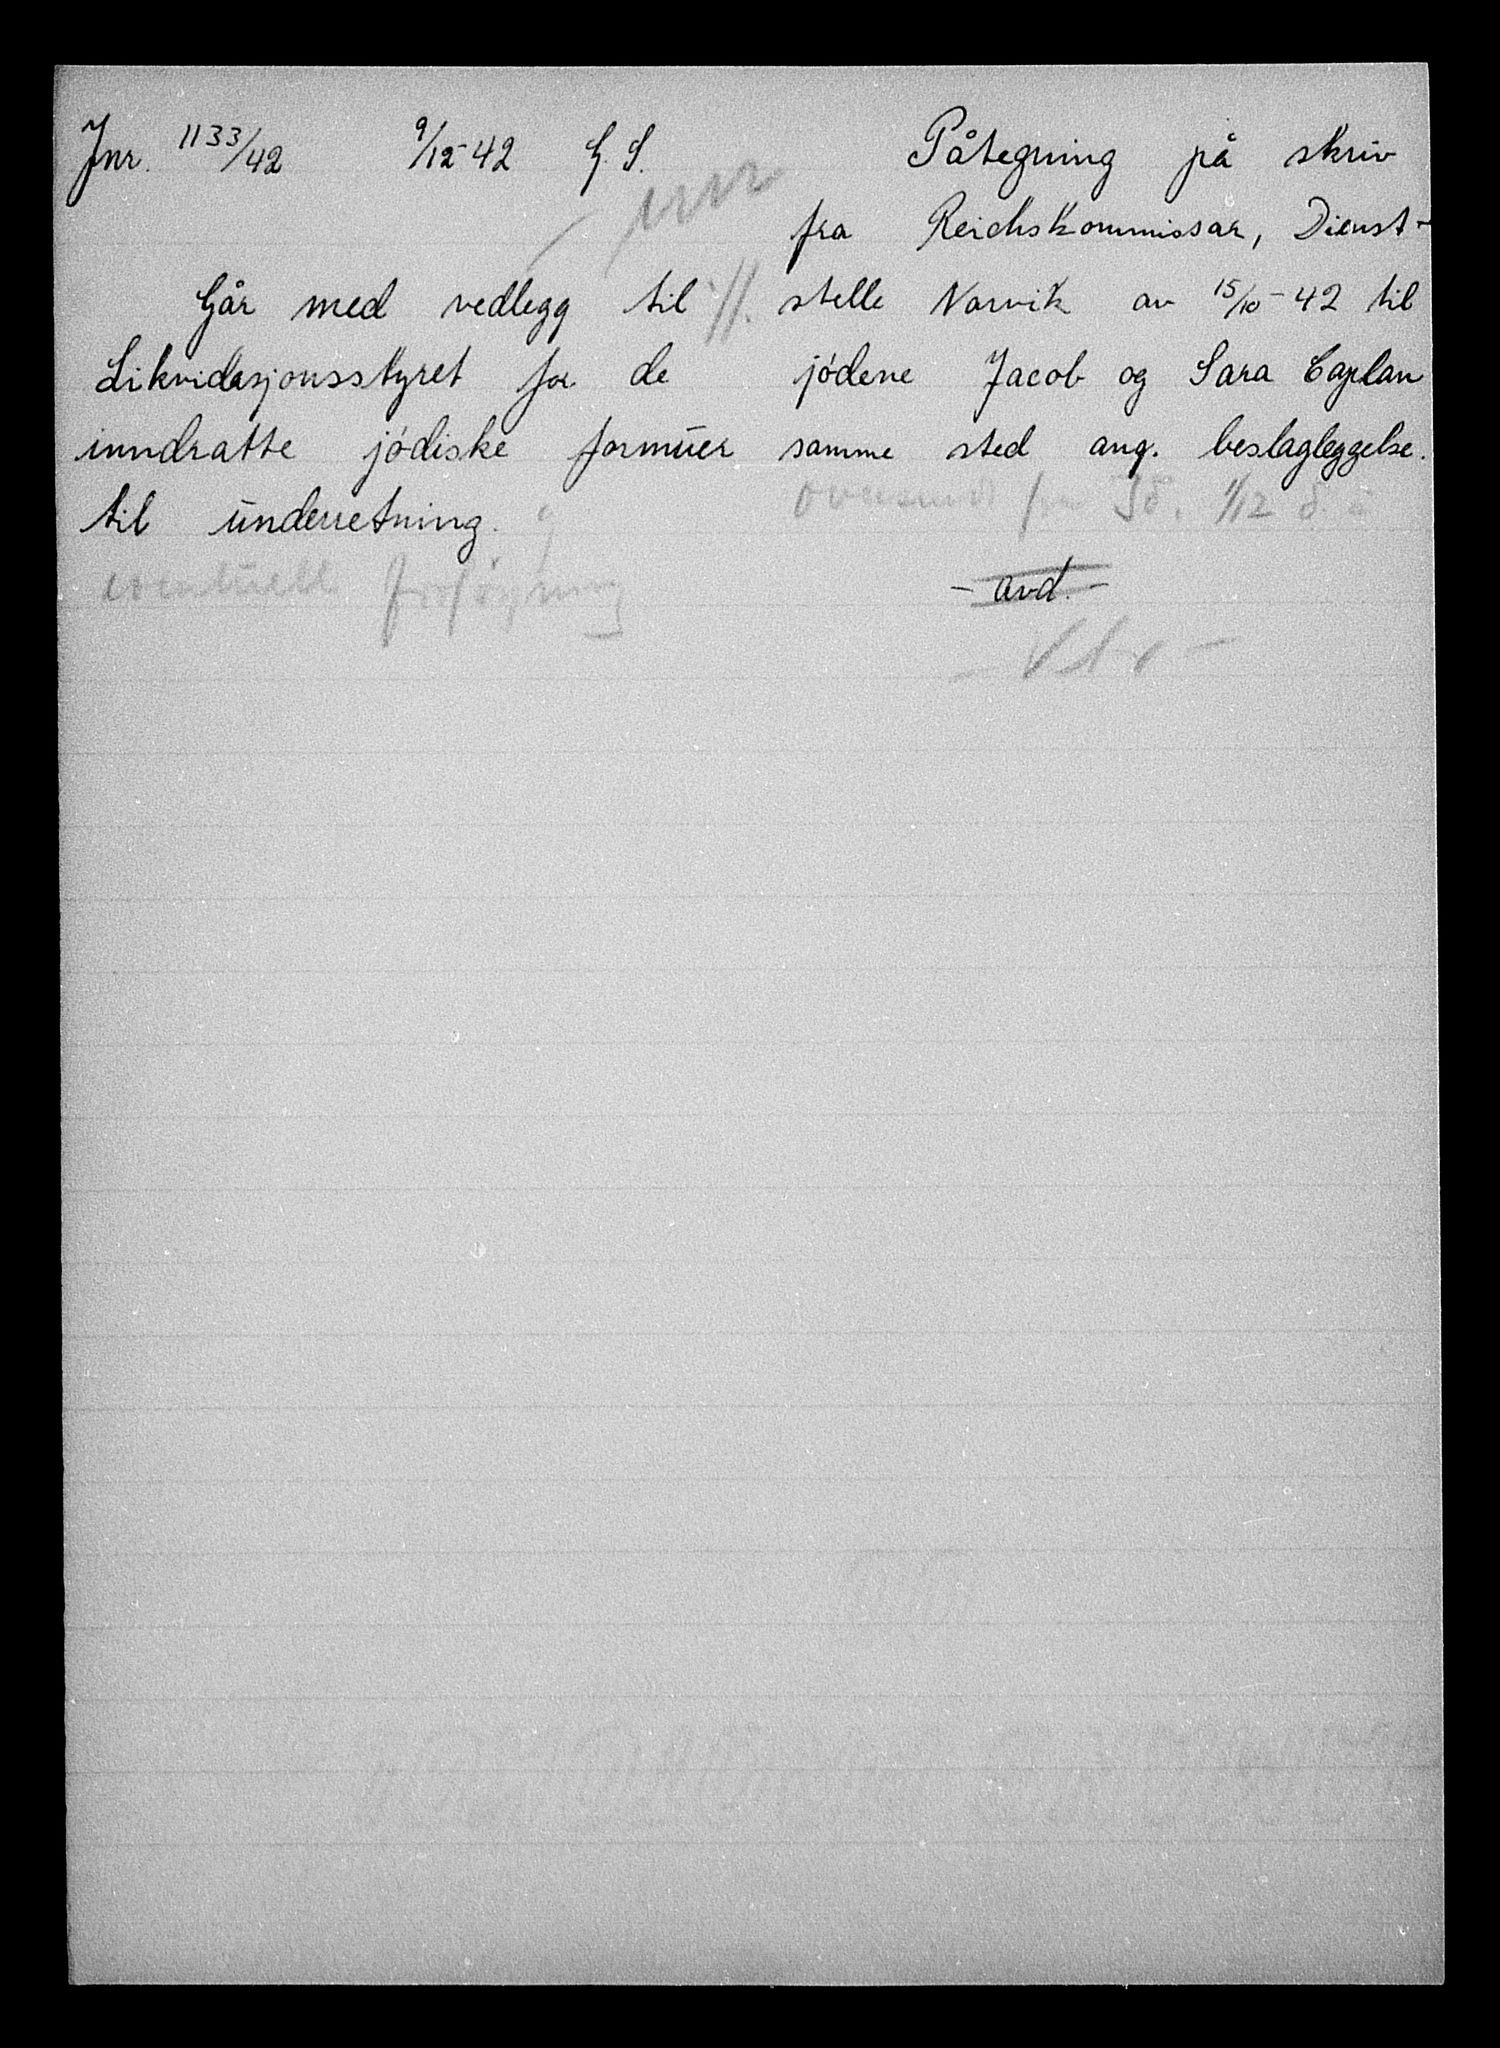 Jnr. 1133/42 9/12-42 G. S.
Går med vedlegg til
Likvidasjonsstyret for de
inndratte jødiske formuer
til underretning. og
eventuell forføyning
Påtegning på skriv
fra Reichskommissar, Dienst-
stelle Narvik av 15/10-42 til
jødene Jacob og Sara Caplan
samme sted ang. beslagleggelse.
oversendt fra 1/12 d. å
- avd. -